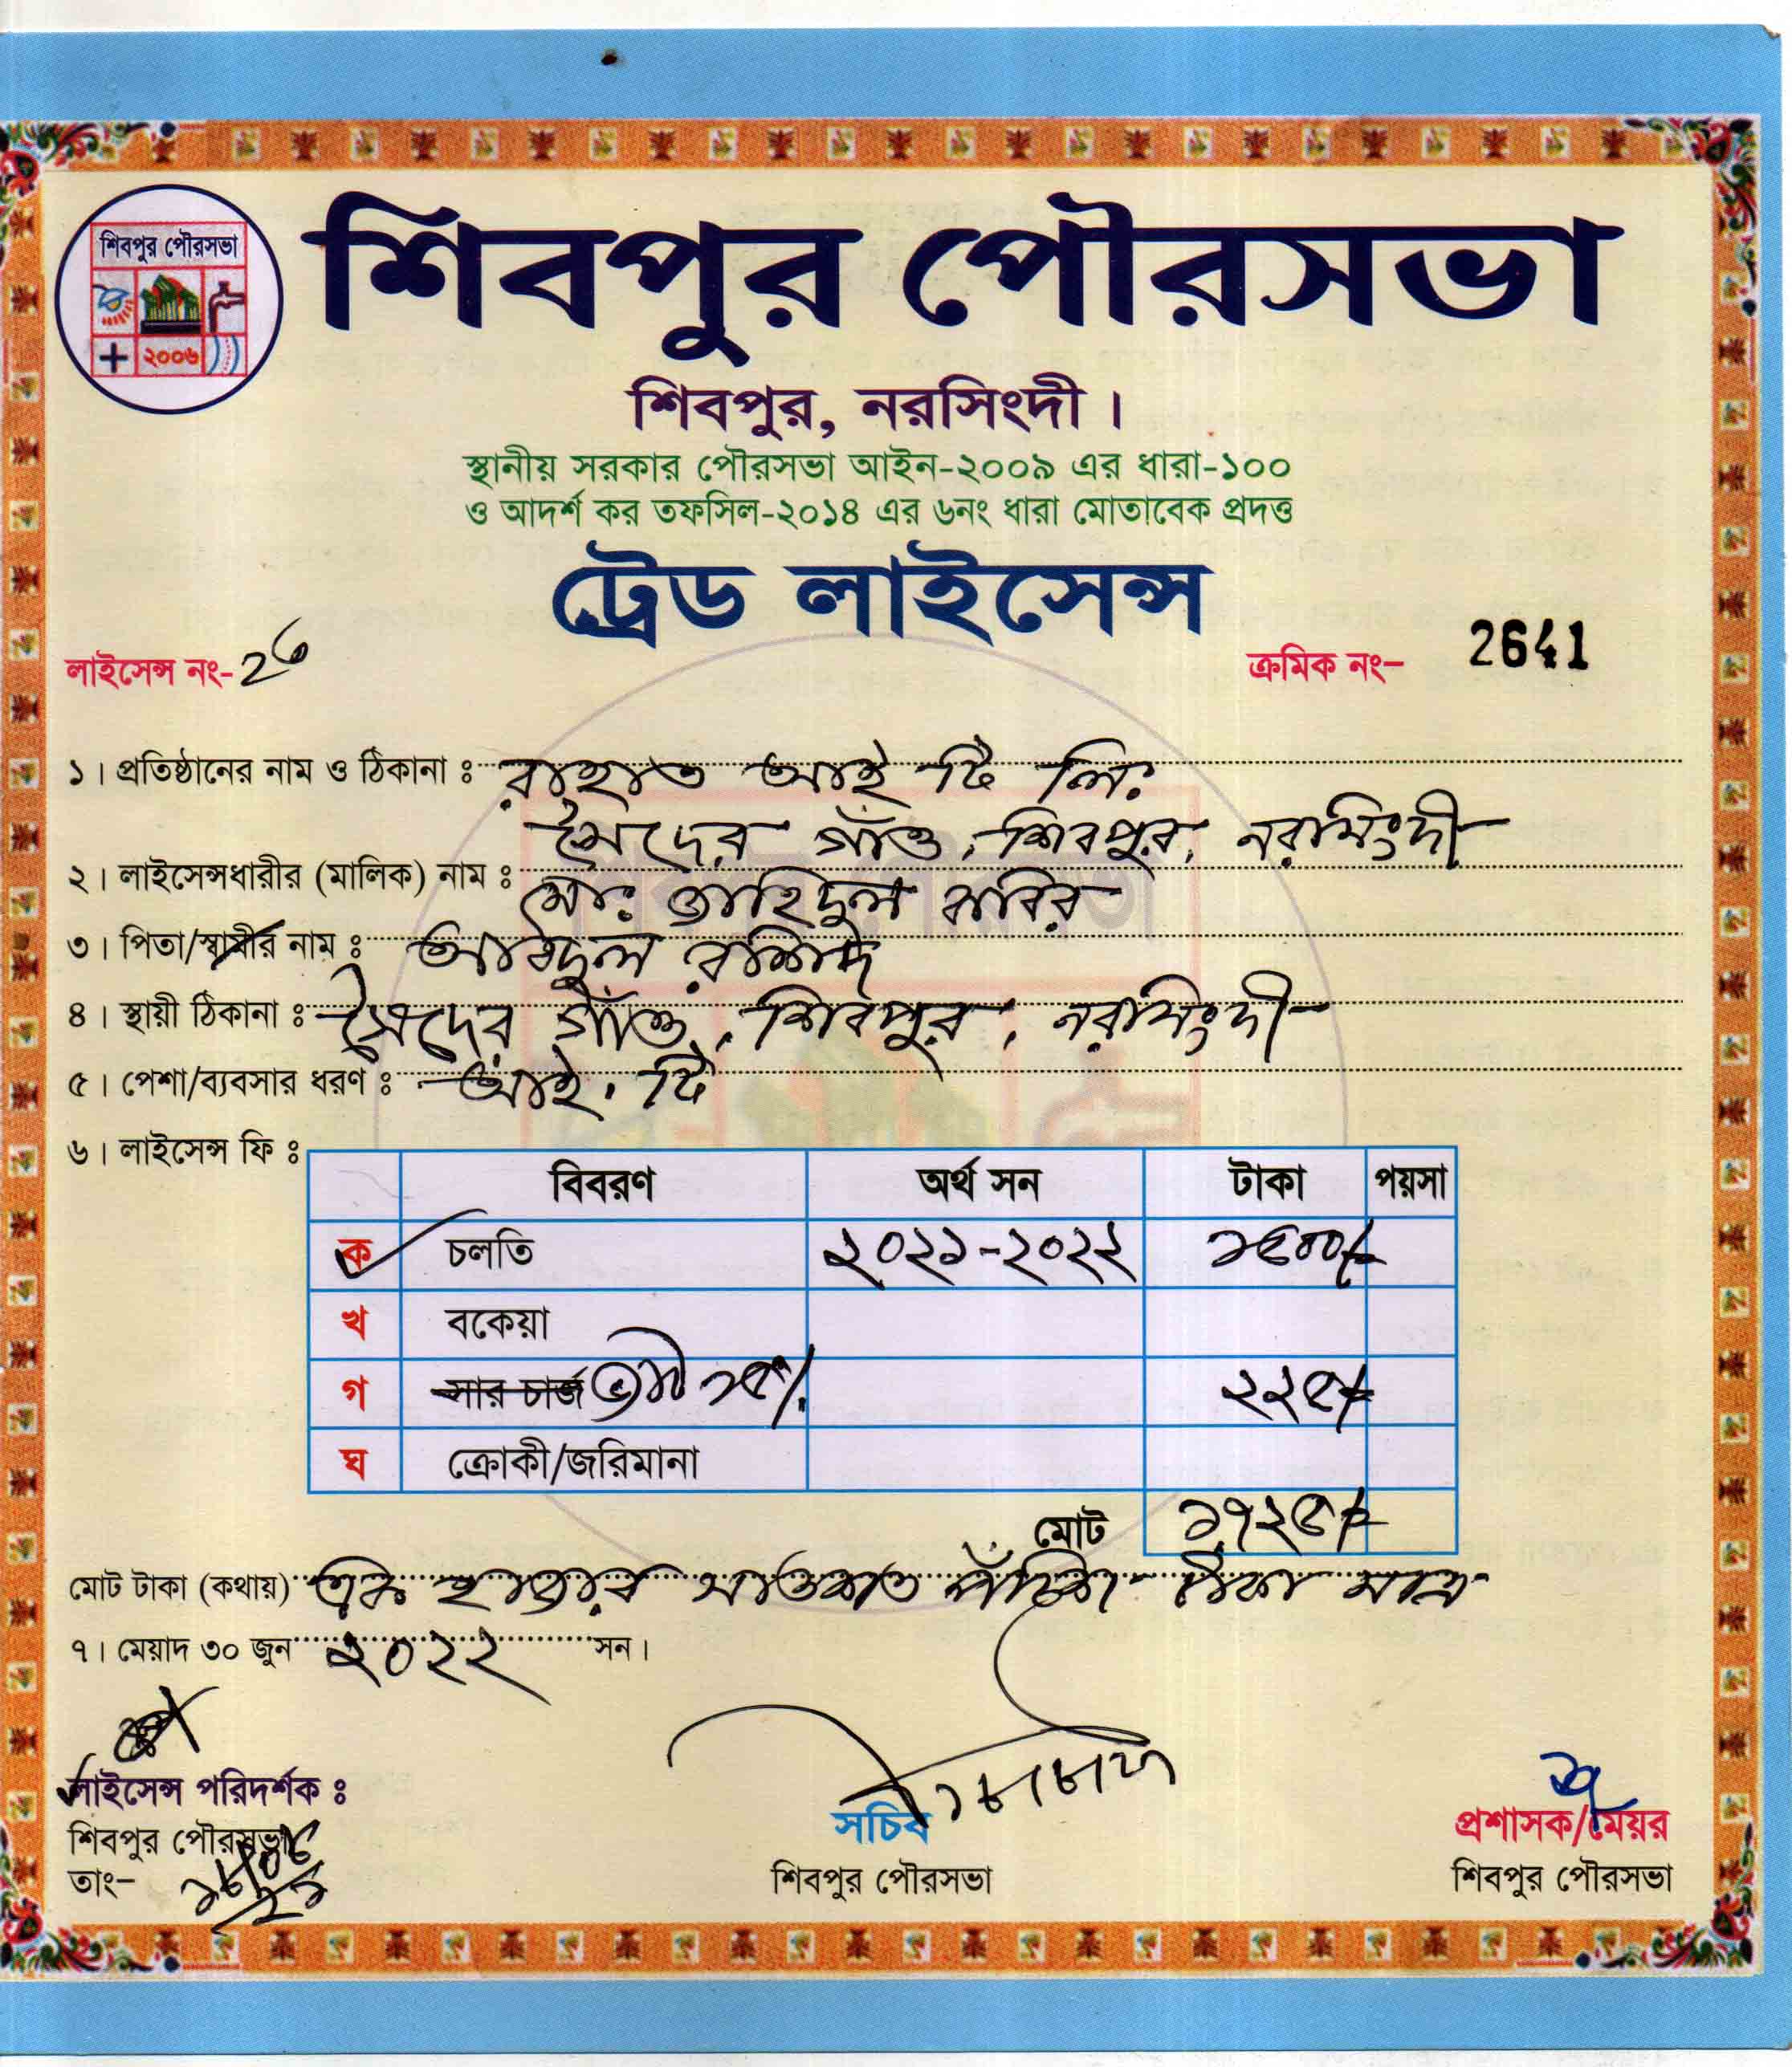 শিবপুর পৌরসভা
২০০৬
শিবপুর পৌরসভা
শিবপুর, নরসিংদী।
স্থানীয় সরকার পৌরসভা আইন-২০০৯ এর ধারা-১০০
ও আদর্শ কর তফসিল-২০১৪ এর ৬নং ধারা মোতাবেক প্রদত্ত
ট্রেড লাইসেন্স
লাইসেন্স নং- 26 ক্রমিক নং- 2641
১। প্রতিষ্ঠানের নাম ও ঠিকানা ঃ রাহাত আই টি লিঃ
সৈদের গাঁও, শিবপুর, নরসিংদী
২। লাইসেন্সধারীর (মালিক) নাম ঃ মোঃ তাহিদুল কবির
৩। পিতা/স্বামীর নাম ঃ আবদুল রশিদ
৪। স্থায়ী ঠিকানা ঃ সৈদের গাঁও, শিবপুর, নরসিংদী
৫। পেশা/ব্যবসার ধরণ ঃ আই. টি
৬। লাইসেন্স ফি ঃ
বিবরণ অর্থ সন টাকা পয়সা
ক চলতি ২০২১-২০২২ ১৫০০/-
খ বকেয়া
গ সার চার্জ ১৫% ২২৫/-
ঘ ক্রোকী/জরিমানা
মোট ১৭২৫/-
মোট টাকা (কথায়) এক হাজার সাতশত পঁচিশ টাকা মাত্র
৭। মেয়াদ ৩০ জুন ২০২২ সন।
লাইসেন্স পরিদর্শক ঃ
শিবপুর পৌরসভা
তাং-
সচিব
শিবপুর পৌরসভা
প্রশাসক/মেয়র
শিবপুর পৌরসভা